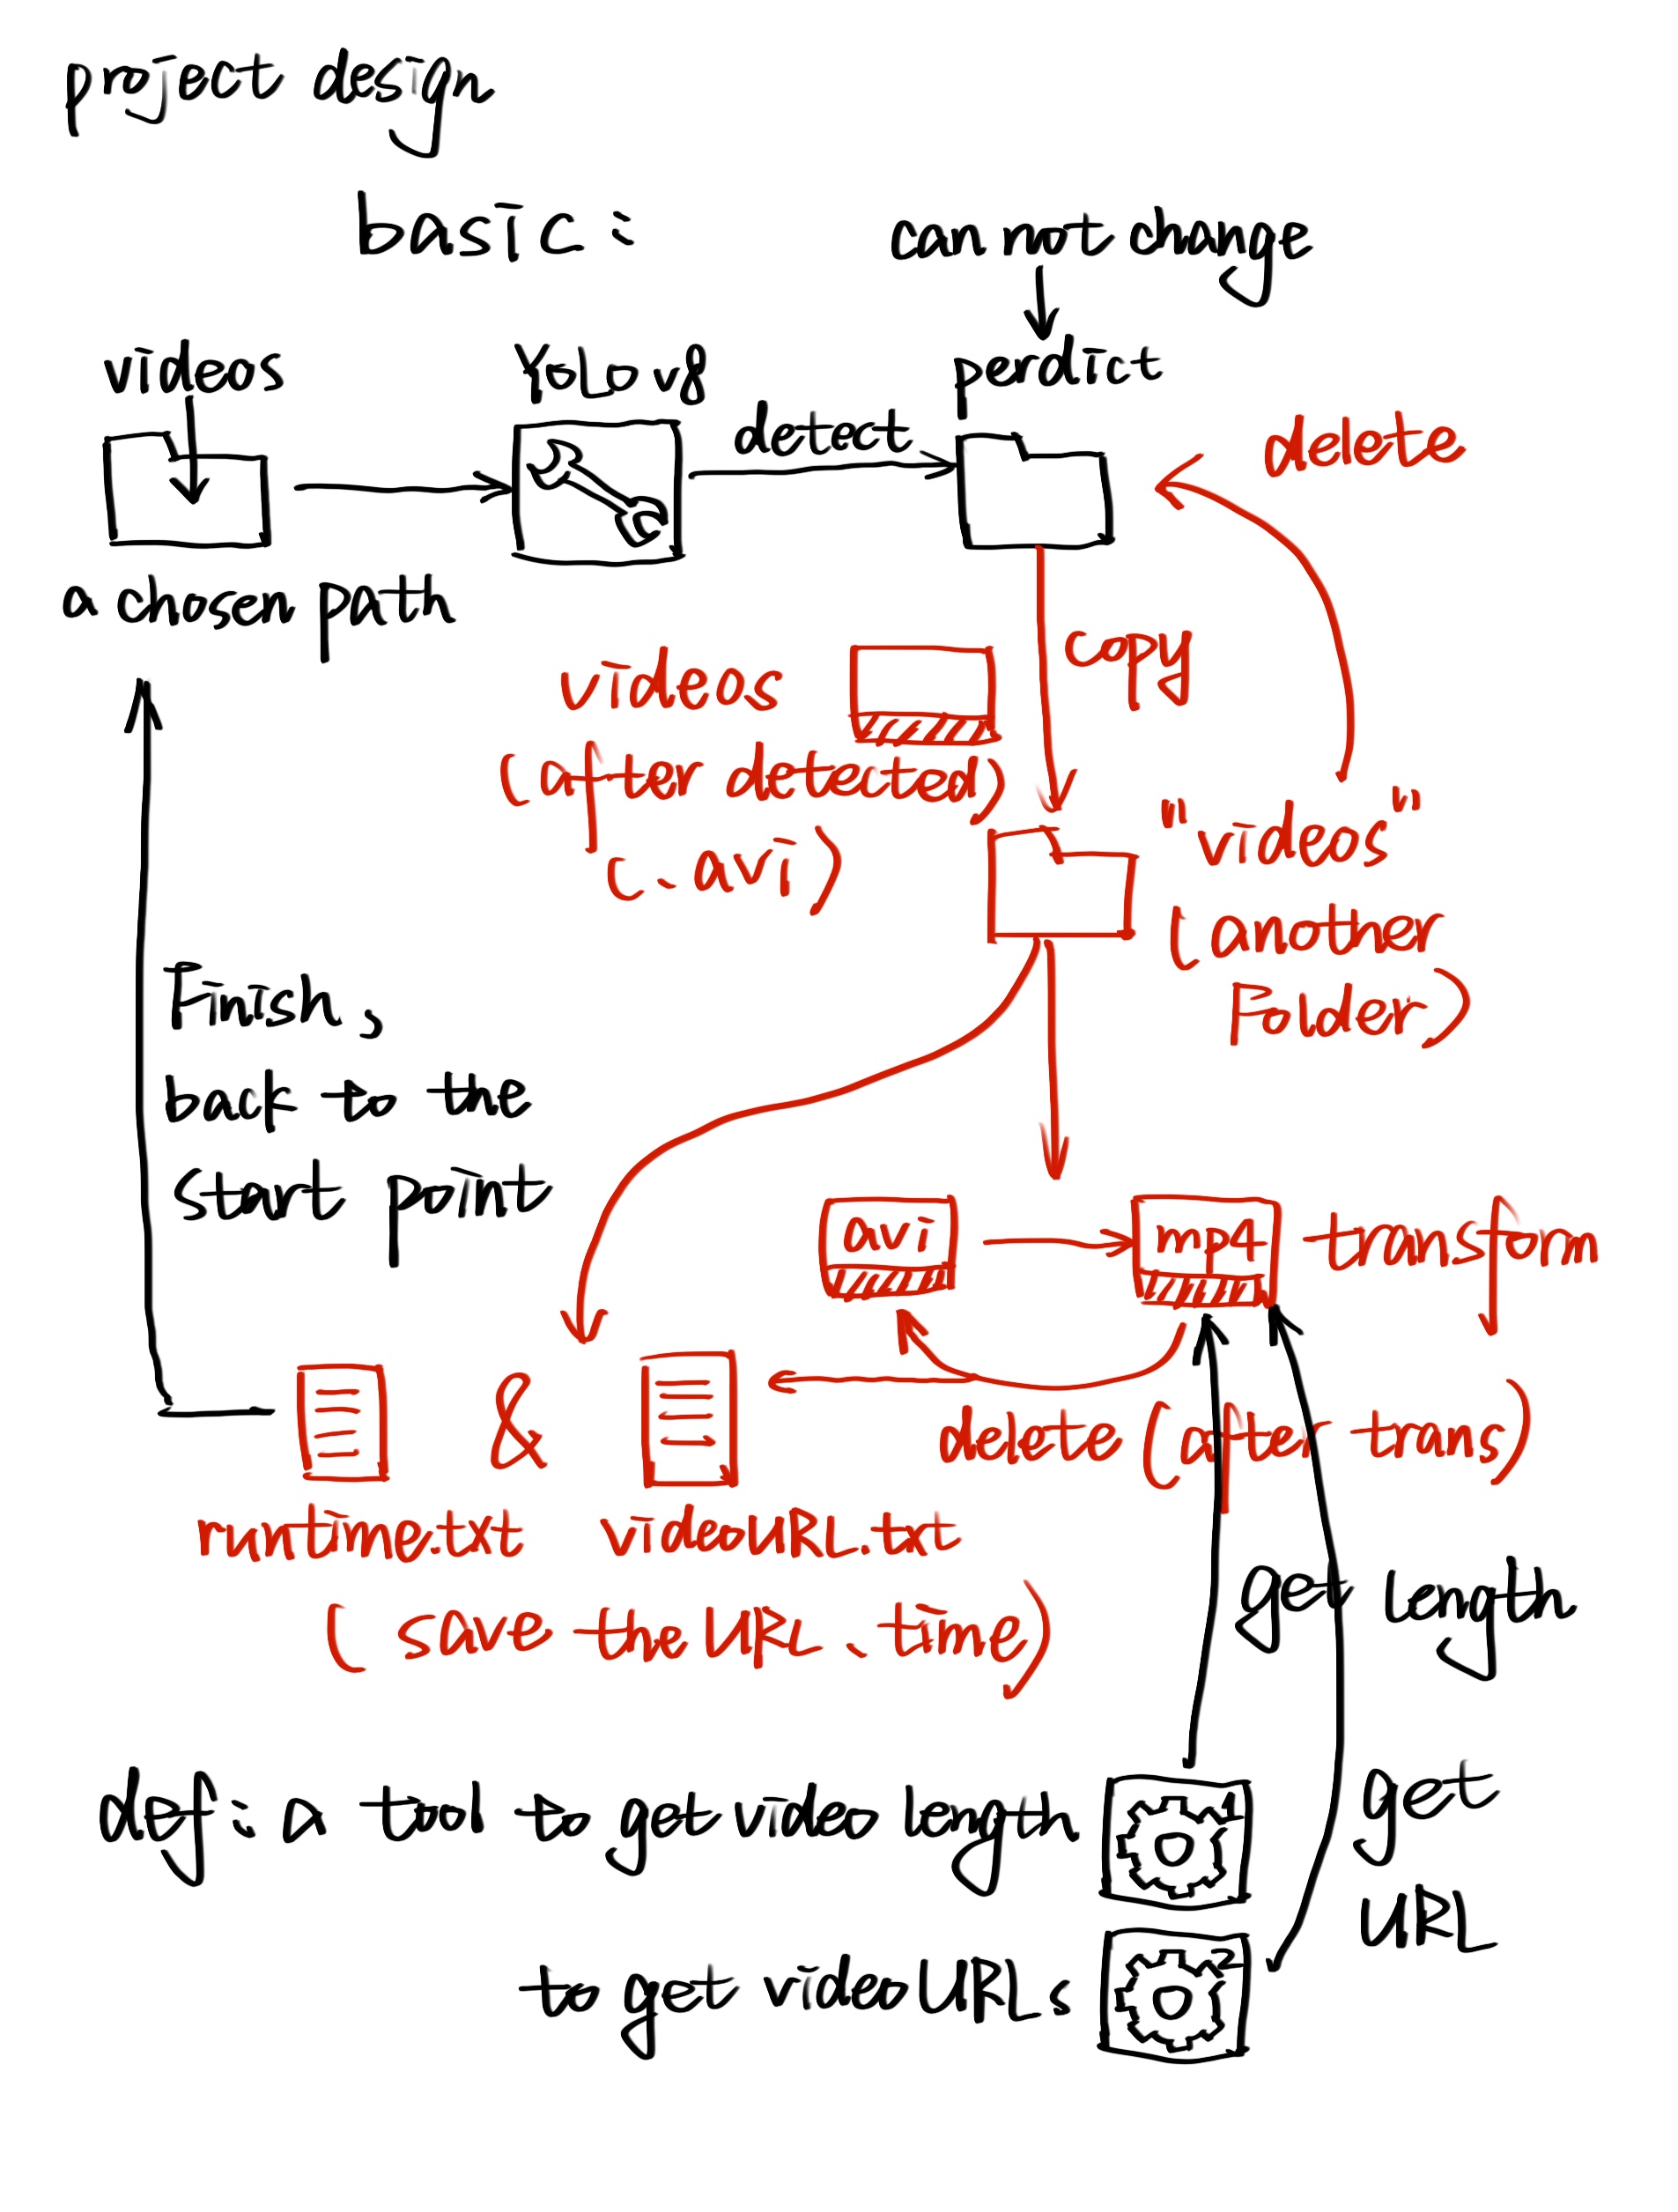 project design
basic:
can not change
videos
YOLOv8
detect
perdict
delete
a chosen path
copy
videos
(after detected)
(.avi)
"videos"
(another
Folder)
Finish,
back to the
start point
avi
mp4
transform
&
delete (after trans)
runtime.txt
videoURL.txt
(save the URL、time)
get length
def: a tool to get video length
1
get
URL
to get video URLs
2